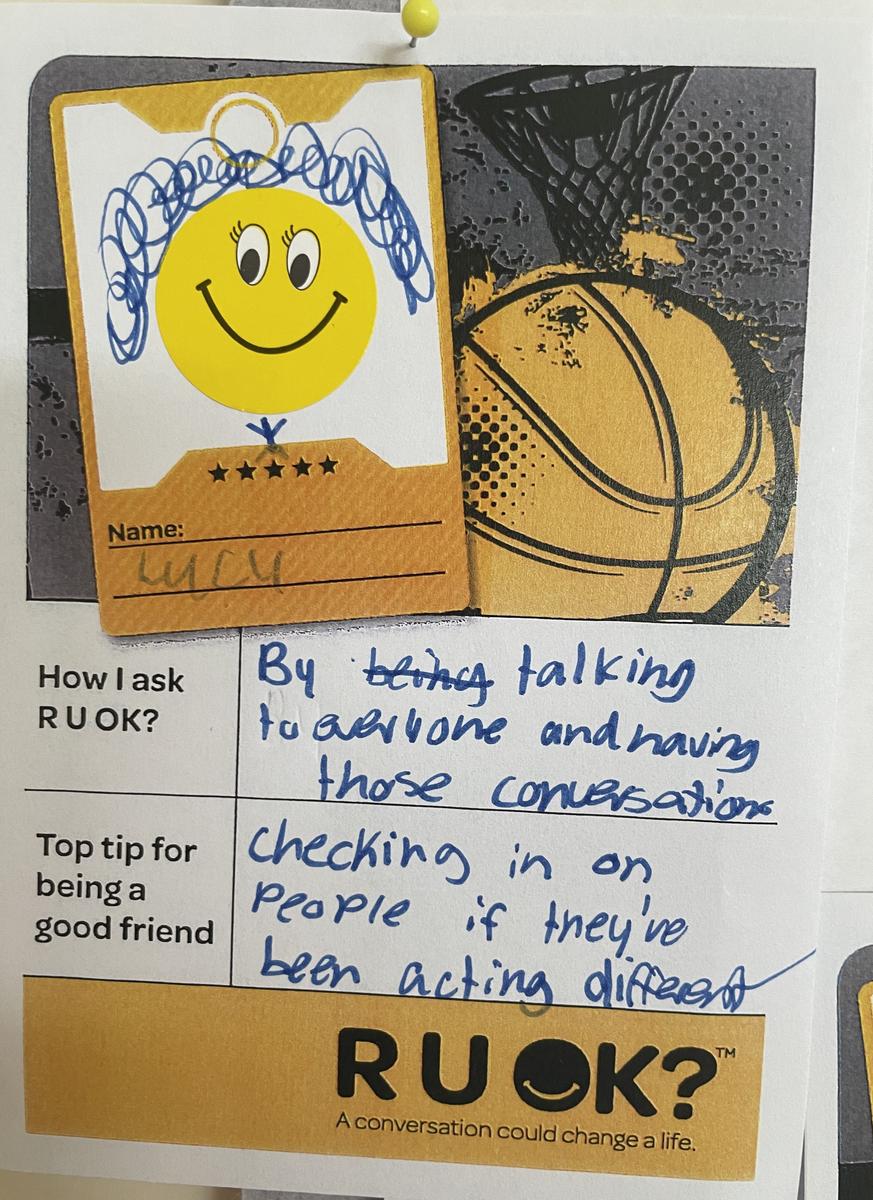 Name:
Lucy
How I ask
R U OK?
By being talking
to everyone and having
those conversations
Top tip for
being a
good friend
Checking in on
People if they've
been acting different
R U OK?™
A conversation could change a life.